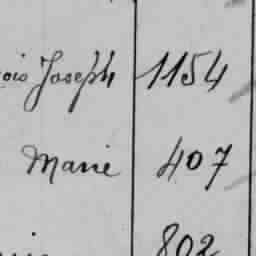 ois Joseph 1154
Marie 407
802